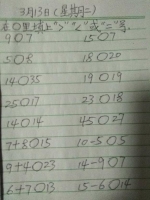 3月13日(星期二)
在○里填上">""<"或"="号.
9○7 15○7
5○8 18○20
14○35 19○19
25○17 23○18
14○14 45○27
7+8○15 10-5○5
9+4○23 14-9○7
6+7○13 15-6○14